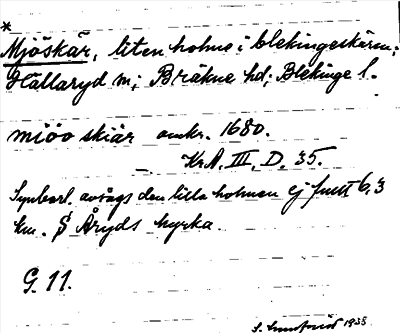 *
Mjöskär, liten holme i blekingeskären;
Hällaryd sn; Bräkne hd; Blekinge l.
miöo skiär omkr. 1680.
Kr.A. III. D. 35.
Synbarl. avsågs den lilla holmen ej fullt 6,3
km. S Åryds kyrka.
G. 11.
1935